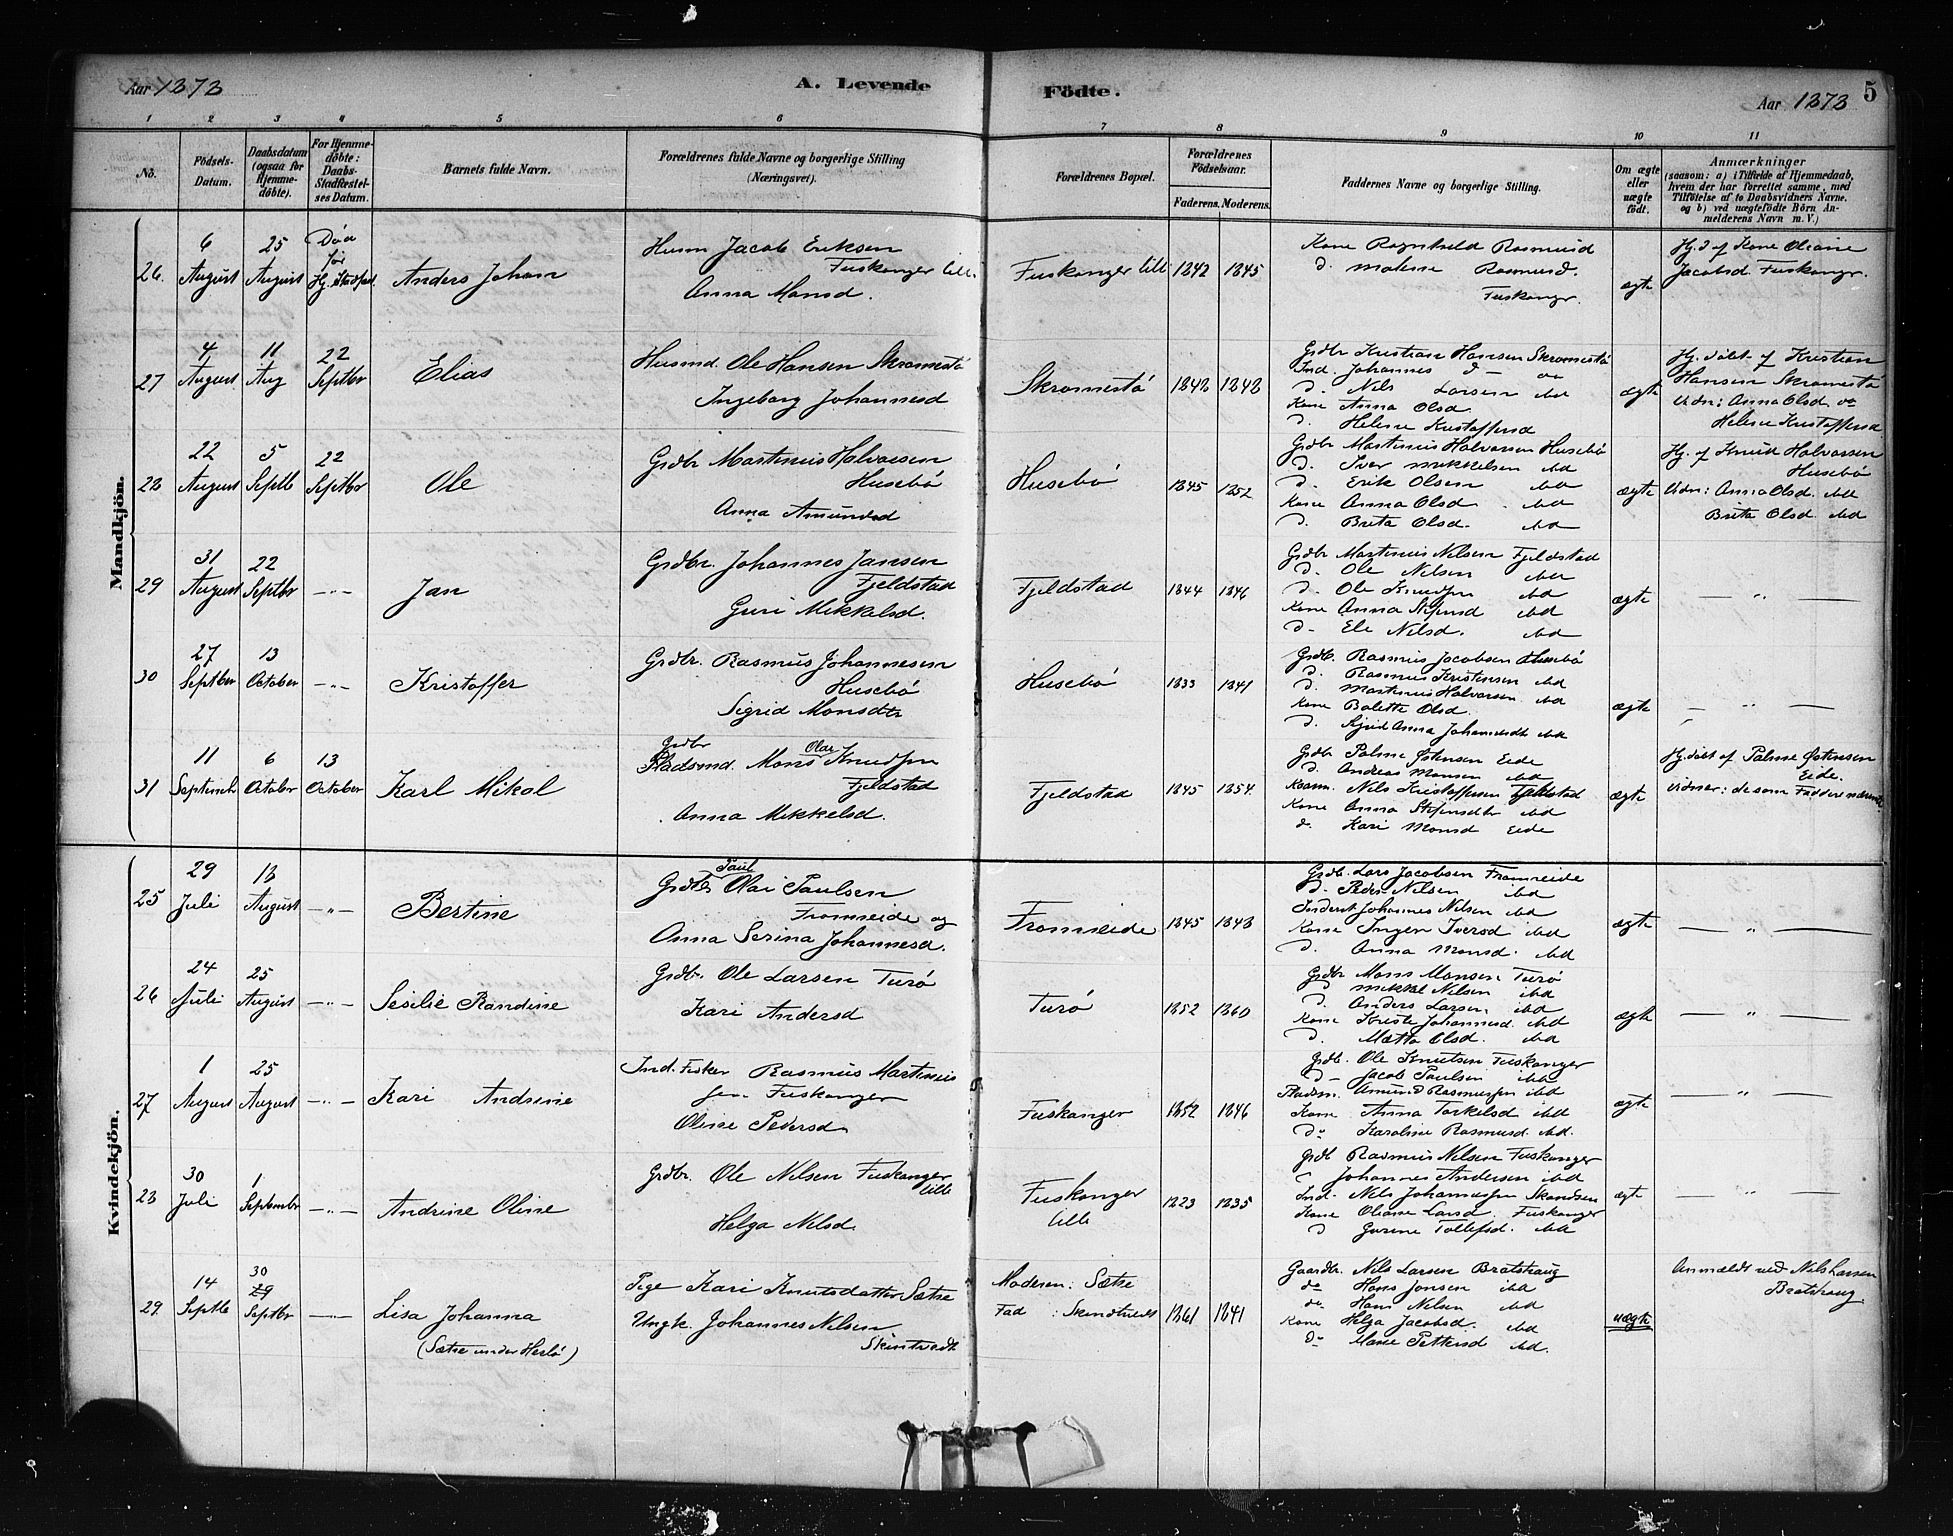 Aar 1878
A. Levende
Födte.
Aar 1878
5
1 2 3 4 5 6 7 8 9 10 11
No.
Födsels-Datum.
Daabsdatum (ogsaa for Hjemmedöbte).
For Hjemmedöbte: Daabs-Stadfæstelses Datum.
Barnets fulde Navn.
Forældrenes fulde Navne og borgerlige Stilling (Næringsvei).
Forældrenes Bopæl.
Forældrenes Födselsaar.
Faderens. Moderens.
Faddernes Navne og borgerlige Stilling.
Om ægte eller uægte födt.
Anmærkninger
(saasom: a) i Tilfælde af Hjemmedaab, hvem der har forrettet samme, med Tilföielse af to Daabsvidners Navne. og b) ved uægtefödte Börn Anmelderens Navn m. V.)
Mandkjön.
26. 6 August 25 August Död før Hj. Stadfæst. Anders Johan
Husm Jacob Eriksen
Fuskanger lill.
Anna Monsd.
Fuskanger lill 1842 1845
Kone Ragnhild Rasmusd
d. Malene Rasmusd.
Fuskangr.
ægte
Hj. d. af Kone Oliane
Jacobsd Fuskangr.
27 4 August 11 Aug 22 Septbr Elias
Husmd. Ole Hansen Skromestø
Ingeborg Johannesd
Skromestø 1848 1848
Grdbr Kristian Hansen Skromestø
Ind. Johannes d
d. Nils Larsen ibd
Kone Anna Olsd
d. Helene Kristoffersd
ægte
Hj. döbt af Kristian
Hansen Skromestø
Vidn: Anna Olsd og
Helene Kristoffersd
28 22 August 5 Septb 22 Septbr Ole
Grdbr Martinius Halvorsen
Husebø
Anna Amundsd
Husebø 1845 1852
Grdbr Martinius Halvorsen Husebø
d. Iver Mikkelsen ibd
d. Erik Olsen ibd
Kone Anna Olsd. ibd
d. Brita Olsd. ibd
ægte
Hj. af Knud Halvorsen
Husebø
Vidn: Anna Olsd. ibd
Brita Olsd. ibd
29 31 August 22 Septbr -"- Jan
Grdbr. Johannes Jansen
Fjeldstad
Guri Mikkelsd.
Fjeldstad 1844 1846
Grdbr Martinius Nilsen Fjeldstad
d. Ole Nilsen ibd
d. Ole Knudsen ibd
Kone Anna Stefensd ibd
d. Eli Nilsd. ibd
ægte — " —
30 27 Septber 13 October -"- Kristoffer
Grdbr. Rasmus Johannesen
Husebø
Sigrid Monsdtr
Husebø 1833 1841
Grdb. Rasmus Jacobsen Husebø
d. Rasmus Kristensen ibd
d. Martinius Halvorsen ibd
Kone Bolette Olsd.
d. Anna Johannesdt ibd
ægte — " —
31 11 Septemb 6 October 13 October Karl Mikal
Grdbr
Pladsmd. Mons Olai Knudsen
Fjeldstad
Anna Mikkelsd.
Fjeldstad 1845 1854
Grdbr Palme Østensen Eide
d. Andreas Monsen ibd
Nils Kristoffersen Fjeldstad
Kone Anna Stefensdtr ibd
d. Kari Monsd Eide
ægte
Hj. döbt af Palme Østensen
Eide.
Vidner: de som Faddere nævnte
Kvindekjön.
25 29 Juli 18 August -"- Bertine
Grdbr Paul Olai Paulsen
Fromreide og
Anna Serina Johannesd.
Fromreide 1845 1848
Grdb. Lars Jacobsen Fromreide
d. Peder Nilsen ibd
Inderst Johannes Nilsen ibd
Kone Inger Iversd ibd
d. Anna Monsd. ibd
ægte — " —
26 24 Juli 25 August -"- Sesilie Randine
Grdbr. Ole Larsen Turø
Kari Andersd
Turø 1852 1860
Grdbr Mons Monsen Turø
d. Mikkel Nilsen ibd
d. Anders Larsen ibd
Kone Kristi Johannesd. ibd
d. Mætta Olsd. ibd
ægte — " —
27 1 August 25 August -"- Kari Andrine
Ind. Fisker Rasmus Martinius
sen Fuskanger
Oline Pedersd.
Fuskanger 1852 1846
Grdb. Ole Knutsen Fuskanger
d- Jacob Paulsen ibd
Pladsm. Amund Rasmussen ibd
Kone Anna Torkelsd ibd
do Karoline Rasmusd. ibd.
ægte — " —
28 30 Juli 1 September -"- Andrine Oline
Grdbr. Ole Nilsen Fuskanger
lille
Helga Nilsd.
Fuskanger
lille
1823 1835
Grdb Rasmus Nilsen Fuskanger
Johannes Andersen ibd
Ind. Nils Johannessen Skandsen
Kone Oliane Larsd. Fuskanger
d Gurine Tollefsd. ibd
ægte — " —
29. 14 Septb 30 29 Septbr -"- Lisa Johanna
(Sætre under Herlø)
Pige Kari Knutsdatter Sætre
Ungk. Johannes Nilsen
Skintvedt
Moderen: Sætre
Fad : Skindtvedt 1861 1841
Gaardbr. Nils Larsen Bratshaug
do Hans Jonsen ibd
do Hans Nilsen ibd
Kone Helga Jacobsd. ibd
do Marie Pettersd ibd.
uægte
Anmældt ved Nils Larsen
Bratshaug